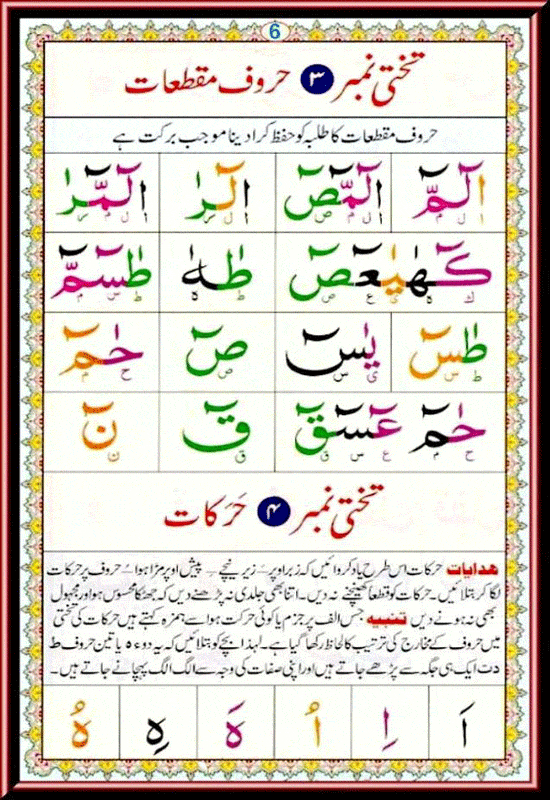 6
تختی نمبر ۳ حروف مقطعات
حروف مقطعات کا طلبہ کو حفظ کرا دینا موجب برکت ہے
الٓمّٓ الٓمّٓصٓ الٓرٰ الٓمّٓرٰ
ا ل م ا ل م ص ا ل ر ا ل م ر
كٓهٰيٰعٓصٓ طٰهٰ طٰسٓمّٓ
ك ه ي ع ص ط ه ط س م
طٰسٓ يٰسٓ صٓ حٰمٓ
ط س ي س ص ح م
حٰمٓ عٓسٓقٓ قٓ نٓ
ح م ع س ق ق ن
تختی نمبر ۴ حَرَکات
ھدایات حرکات اس طرح یاد کروائیں کہ زبر اوپر ـَ زیر نیچے ـِ پیش اوپر مڑا ہوا ـُ حروف پر حرکات
لگا کر بتلائیں۔ حرکات کو قطعاً کھینچنے نہ دیں۔ اتنا بھی جلدی نہ پڑھنے دیں کہ جھٹکا محسوس ہو اور مجہول
بھی نہ ہونے دیں تنبیہ جس الف پر جزم یا کوئی حرکت ہو اسے ہمزہ کہتے ہیں حرکات کی تختی
میں حروف کے مخارج کی ترتیب کا لحاظ رکھا گیا ہے۔ لہٰذا بچے کو بتلائیں کہ یہ دو ء ہ یا تین حروف ط
د ت ایک ہی جگہ سے پڑھے جاتے ہیں اور اپنی صفات کی وجہ سے الگ الگ پہچانے جاتے ہیں۔
اَ اِ اُ هَ هِ هُ